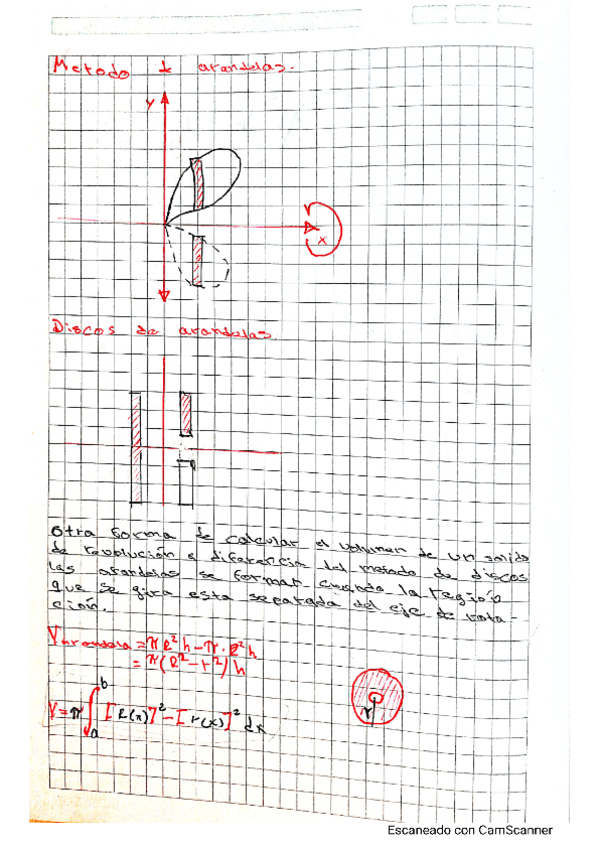 Metodo de arandelas.
y
x
Discos de arandelas
Otra forma de calcular el volumen de un solido
de revolución a diferencia del metodo de discos
las arandelas se forman cuando la región
que se gira esta separada del eje de rota-
ción.
Varandela = πR²h - π·R²h
= π(R² - r²)h
r
V = π∫ₐᵇ [R(x)]² - [r(x)]² dx
Escaneado con CamScanner